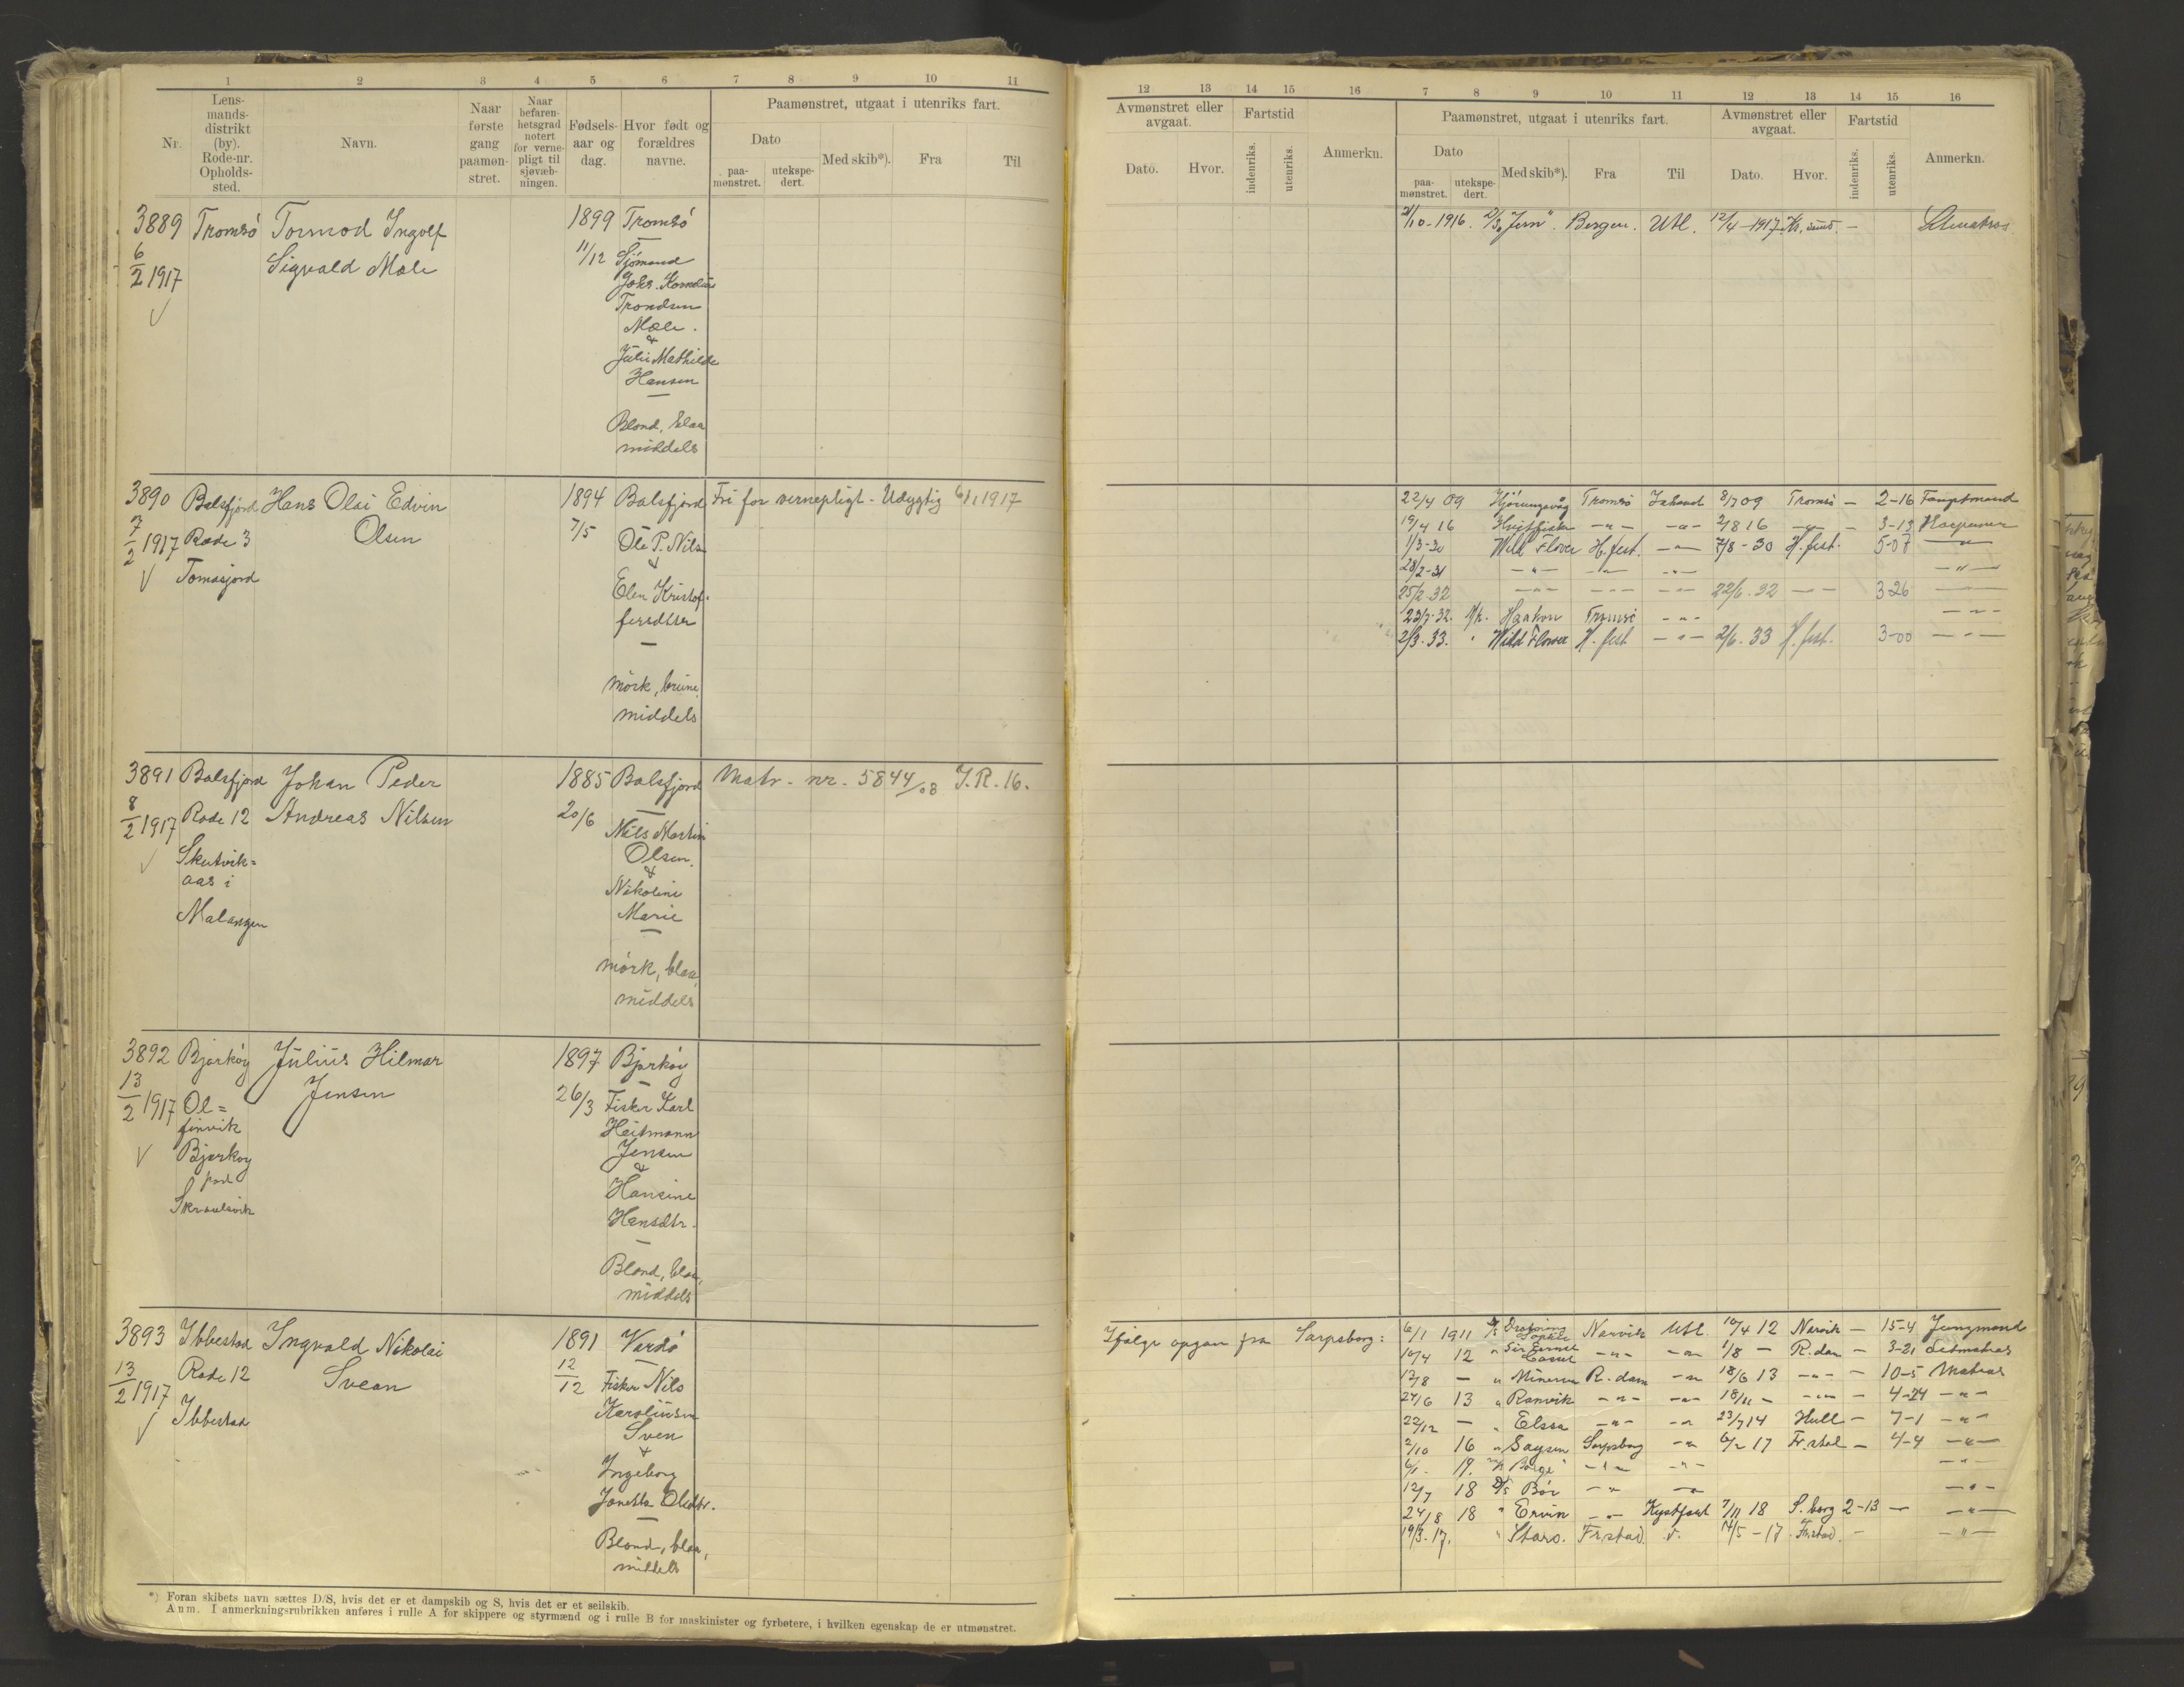 1 2 3 4 5 6 7 8 9 10 11
Nr. Lensmandsdistrikt (by). Rode-nr. Opholdssted. Navn. Naar første gang paamønstret. Naar befarenhetsgrad notert for vernepligt til sjøvæbningen. Fødselsaar og dag. Hvor født og forældres navne. Paamønstret, utgaat i utenriks fart.
Dato Med skib*). Fra Til
paamønstret. utekspedert.
3889 Tromsö Tormod Ingolf 1899 Tromsö
6/2 1917 Sigvald Mæle 11/12 Sjömand
Johs. Kornelius
Trondsen
Mæle.
&
Julie Mathilde
Hansen
Blond, blaa
middels
3890 Balsfjord Hans Olai Edvin 1894 Balsfjord Fri for vernepligt - Udygtig 6/1 1917
7/2 1917 Rode 3 Olsen 7/5 Ole P. Nils
Tomasjord &
Elen Kristof-
fersdtter
mörk, brune,
middels
3891 Balsfjord Johan Peder 1885 Balsfjord Matr. nr. 5844/08 I.R. 16.
8/2 1917 Rode 12 Andreas Nilsen 20/6 Nils Martin
Skutvik= Olsen.
aas i &
Malangen Nikoline
Marie
mörk, blaa,
middels
3892 Bjarköy Julius Hilmar 1897 Bjarköy
13/2 1917 Ol= Jensen 26/3 Fisker Karl
finvik Heitmann
Bjarkoy Jensen
post &
Skrovlsvik Hansine
Hansdtr.
Blond, blaa,
middels
3893 Ibbestad Ingvald Nikolai 1891 Vardö
13/2 1917 Rode 12 Svean 12/12 Fisker Nils
Ibbestad Karoliusen
Sven
&
Ingeborg
Janetta Olsdtr.
Blond, blaa,
middels
*) Foran skibets navn sættes D/S, hvis det er et dampskib og S, hvis det er et seilskib.
Anm. I anmerkningsrubrikken anføres i rulle A for skippere og styrmænd og i rulle B for maskinister og fyrbøtere, i hvilken egenskap de er utmønstret.
12 13 14 15 16 7 8 9 10 11 12 13 14 15 16
Avmønstret eller avgaat. Fartstid Anmerkn. Paamønstret, utgaat i utenriks fart. Avmønstret eller avgaat. Fartstid Anmerkn.
Dato. Hvor. indenriks. utenriks. Dato Med skib*). Fra Til Dato. Hvor. indenriks. utenriks.
paamønstret. utekspedert.
21/10-1916. "Jern". Bergen. Utl. 12/4-1917. Kr.sund. - Letmatros
22/4 09 Hjörungavåg Tromsö Ishavet 8/7 09 Tromsö - 2-16 Fangstmand
19/4 16 Hvidfisken -"- -"- 2/8 16 -"- - 3-13 Harpuner
1/3-30 Wild Flover H.fest. -"- 7/8-30 H.fest. 5-07 -"-
28/2-31 -"- -"- -"- -"-
25/2.32 -"- -"- -"- 22/6.32 -"- 3-26 -"-
23/7.32. M/k. Haakon Tromsö -"- -"-
2/3.33. " Wild Flower H.fest -"- 2/6.33 H.fest. 3-00 -"-
Ifølge opgav fra Sarpsborg: 6/1 1911 D/S Dronning Sophie Narvik Utl. 10/4 12 Narvik - 15-4 Jungmand
10/4 12 " Sir Ernest Cassel -"- -"- 1/8 - R.dam - 3-21 Letmatros
12/8 - " Minerva R.dam -"- 18/6 13 -"- - 10-5 Matros
24/6 13 " Ranvik -"- -"- 18/11 - -"- - 4-24 -"-
22/12 - " Elssa -"- -"- 23/7 14 Hull - 7-1 -"-
2/10 16 " Sarpsborg -"- 6/2 17 Fr.stad - 4-4 -"-
6/1. 19. "Borge" -"- -"- -"-
12/7 18 D/S Bör -"- -"- -"-
24/8 18 " Ervin -"- Kystfart 7/11 18 S.borg 2-13 - -"-
19/3.17. " Staro. Fr.stad. 14/5-17 Fr.stad. - -"-